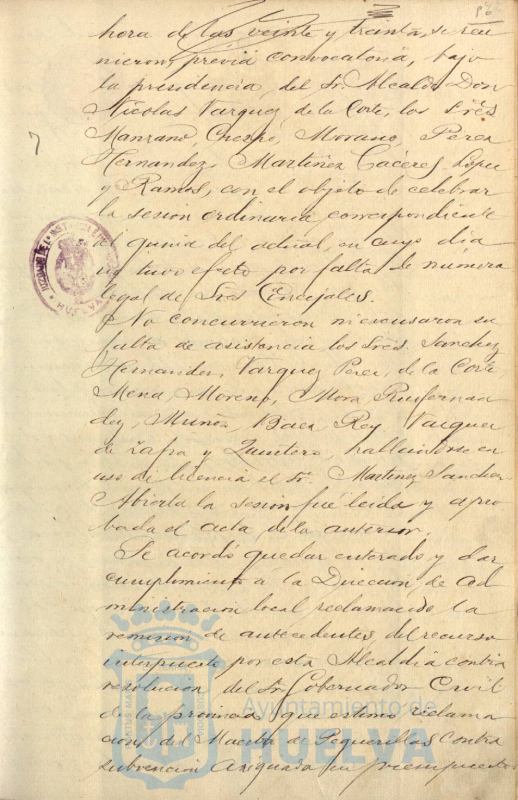 hora de las veinte y treinta, se reu
nieron, prévia convocatoria, bajo
la presidencia, del Sr. Alcalde Don
Nicolas Vazquez de la Corte, los Sres
Manzano, Crespo, Morano, Perez
Hernandez, Martinez Caceres, Lopez
y Ramos, con el objeto de celebrar
la sesion ordinaria correspondiente
al quince del actual, en cuyo dia
no tuvo efecto por falta de número
legal de Sres Concejales.
No concurrieron ni excusaron su
falta de asistencia los Sres. Sanchez
Hernandez, Vazquez Perez, de la Corte,
Mena, Moreno, Mora, Ruifernan
dez, Muñoz, Baez, Rey, Vazquez
de Zafra y Quintero, hallandose en
uso de licencia el Sr. Martinez Sanchez
Abierta la sesion fué leida y apro
bada el acta de la anterior.
Se acordó quedar enterado y dar
cumplimiento a la Direccion de ad
ministracion local reclamando la
remision de antecedentes del recurso
interpuesto por esta Alcaldia contra
resolucion del Sr. Gobernador Civil
de la provincia que estimó reclama
cion del Maestro de contra
subvencion asignada en presupuesto
Ayuntamiento de
HUELVA